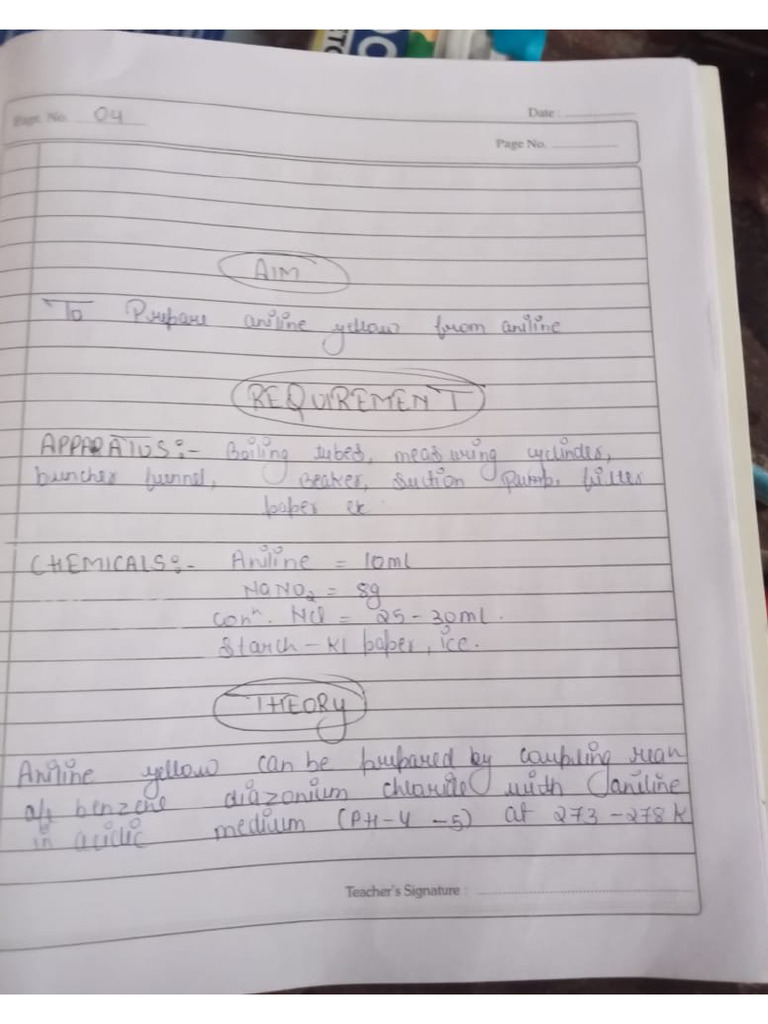 Page No. 04
Date :
Page No.
AIM
To Prepare aniline yellow from aniline
REQUIREMENT
APPARATUS:- Boiling tubes, measuring cyclinder,
buncher funnel, Beaker, Suction Pump, filter
paper etc
CHEMICALS:- Aniline = 10ml
NaNO2 = 8g
conⁿ. HCl = 25-30ml.
Starch-KI paper, ice.
THEORY
Aniline yellow can be prepared by coupling rean
of benzene diazonium chloride with aniline
in acidic medium (PH-4-5) at 273-278K
Teacher's Signature :